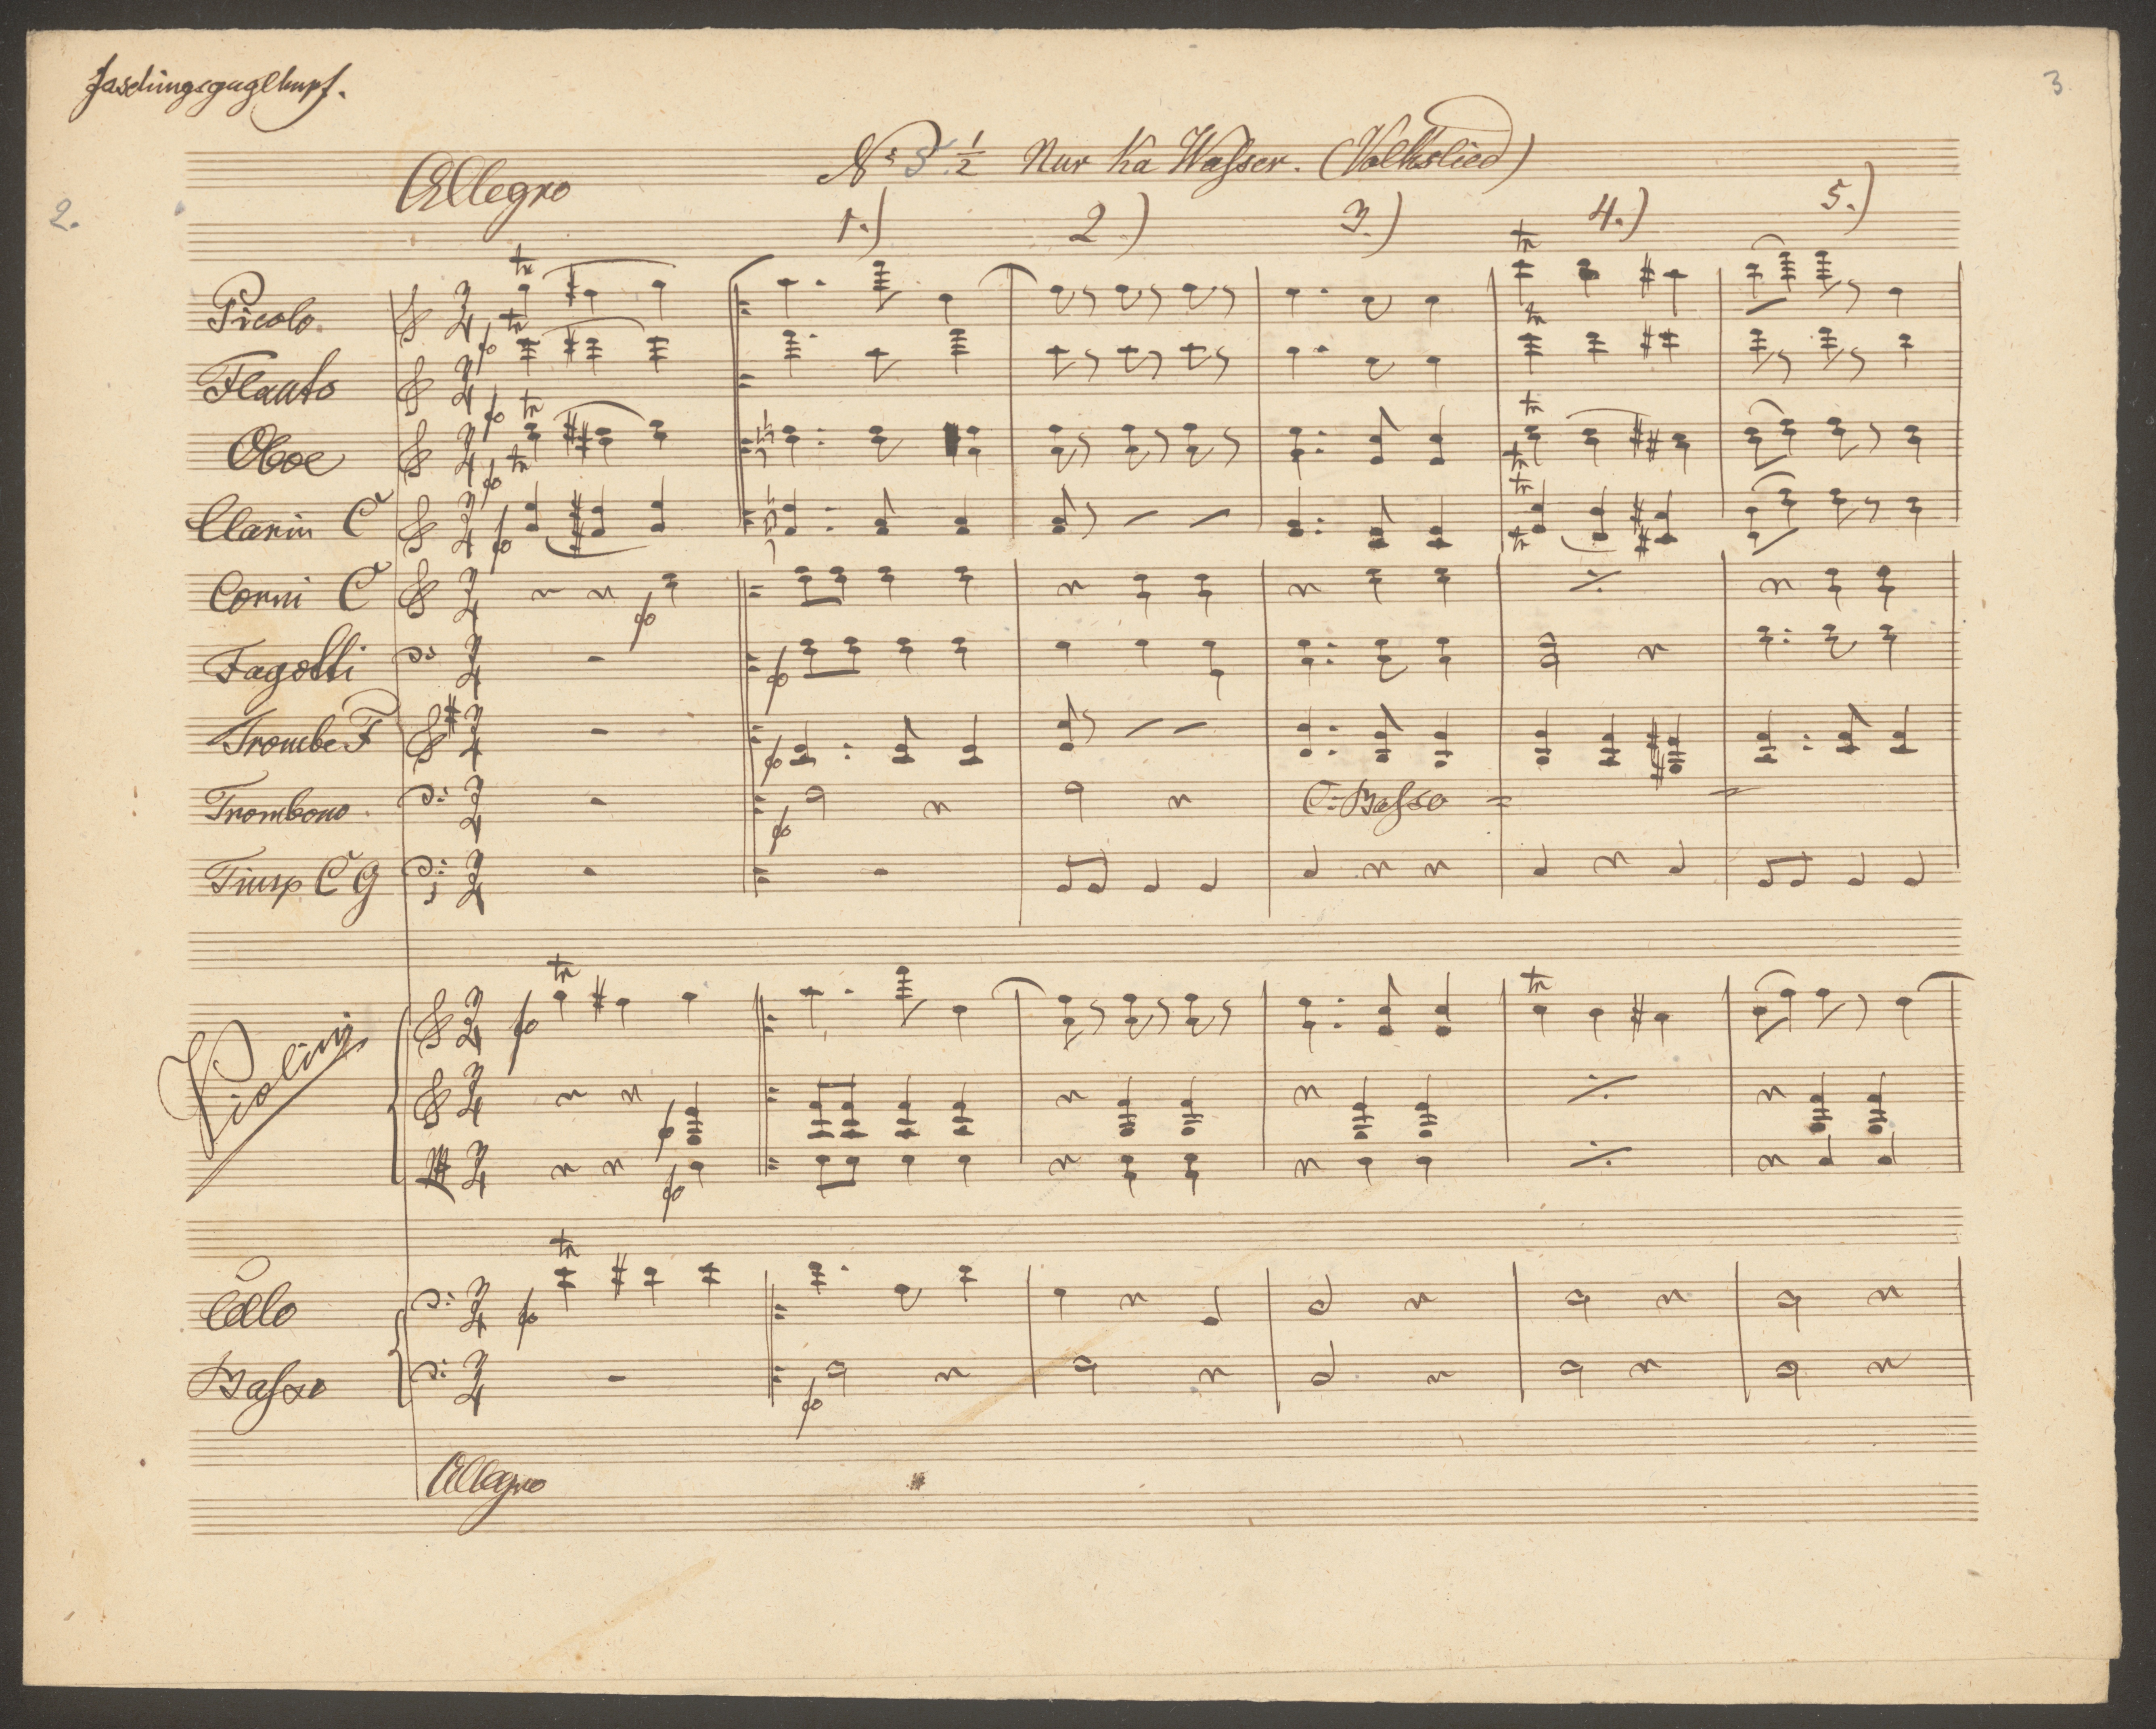 Faschingsgugelhupf.
3
Allegro
No 5 1/2 Nur Ka Wasser. (Volkslied)
2.
1.) 2) 3.) 4.) 5.)
Picolo.
Flauto
Oboe
Clarin C
Corni C
Fagotti
Trombe F
Trombono.
C. Basso
Timp C G
Violini
Cello
Basso
Allegro